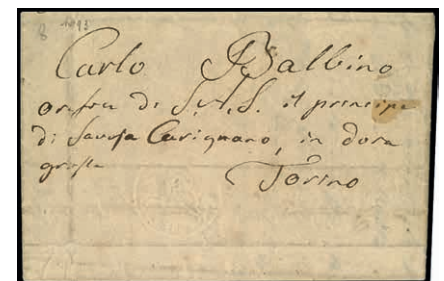 8 1793
Carlo Balbino
orefice di S.A.S. il principe
di Savoja Carignano, in dora
grossa
Torino